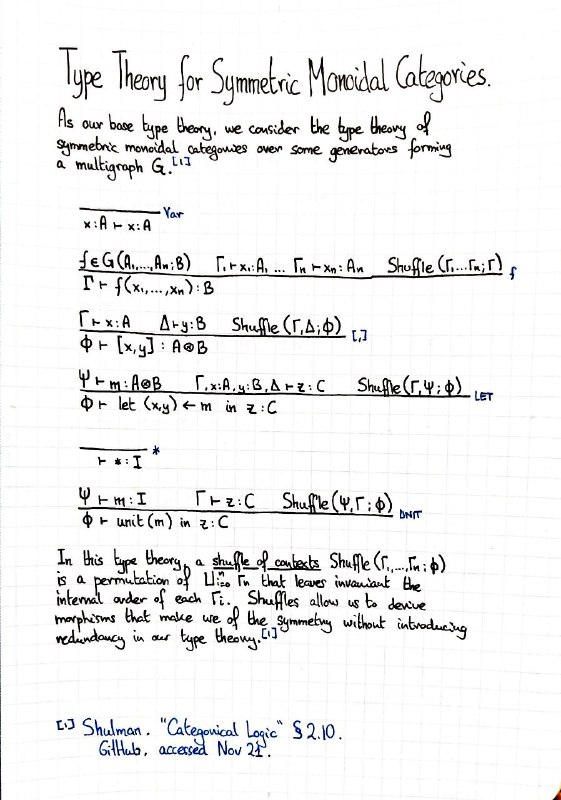 Type Theory for Symmetric Monoidal Categories.
As our base type theory, we consider the type theory of
symmetric monoidal categories over some generators forming
a multigraph G.[1]
Var
x:A ⊢ x:A
f∈G(A₁,...,Aₙ;B) Γ₁⊢x₁:A₁ ... Γₙ⊢xₙ:Aₙ Shuffle(Γ₁...Γₙ;Γ) f
Γ ⊢ f(x₁,...,xₙ):B
Γ⊢x:A Δ⊢y:B Shuffle(Γ,Δ;ϕ) [,]
ϕ ⊢ [x,y] : A⊗B
Ψ⊢m:A⊗B Γ,x:A,y:B,Δ⊢z:C Shuffle(Γ,Ψ;ϕ) LET
ϕ ⊢ let (x,y) ← m in z:C
*
⊢ *:I
Ψ⊢m:I Γ⊢z:C Shuffle(Ψ,Γ;ϕ) UNIT
ϕ ⊢ unit(m) in z:C
In this type theory, a shuffle of contexts Shuffle(Γ₁,...,Γₙ;ϕ)
is a permutation of ⊔ⁿᵢ₌₀ Γₙ that leaves invariant the
internal order of each Γᵢ. Shuffles allow us to derive
morphisms that make use of the symmetry without introducing
redundancy in our type theory.[1]
[1] Shulman. "Categorical Logic" §2.10.
GitHub, accessed Nov 21.